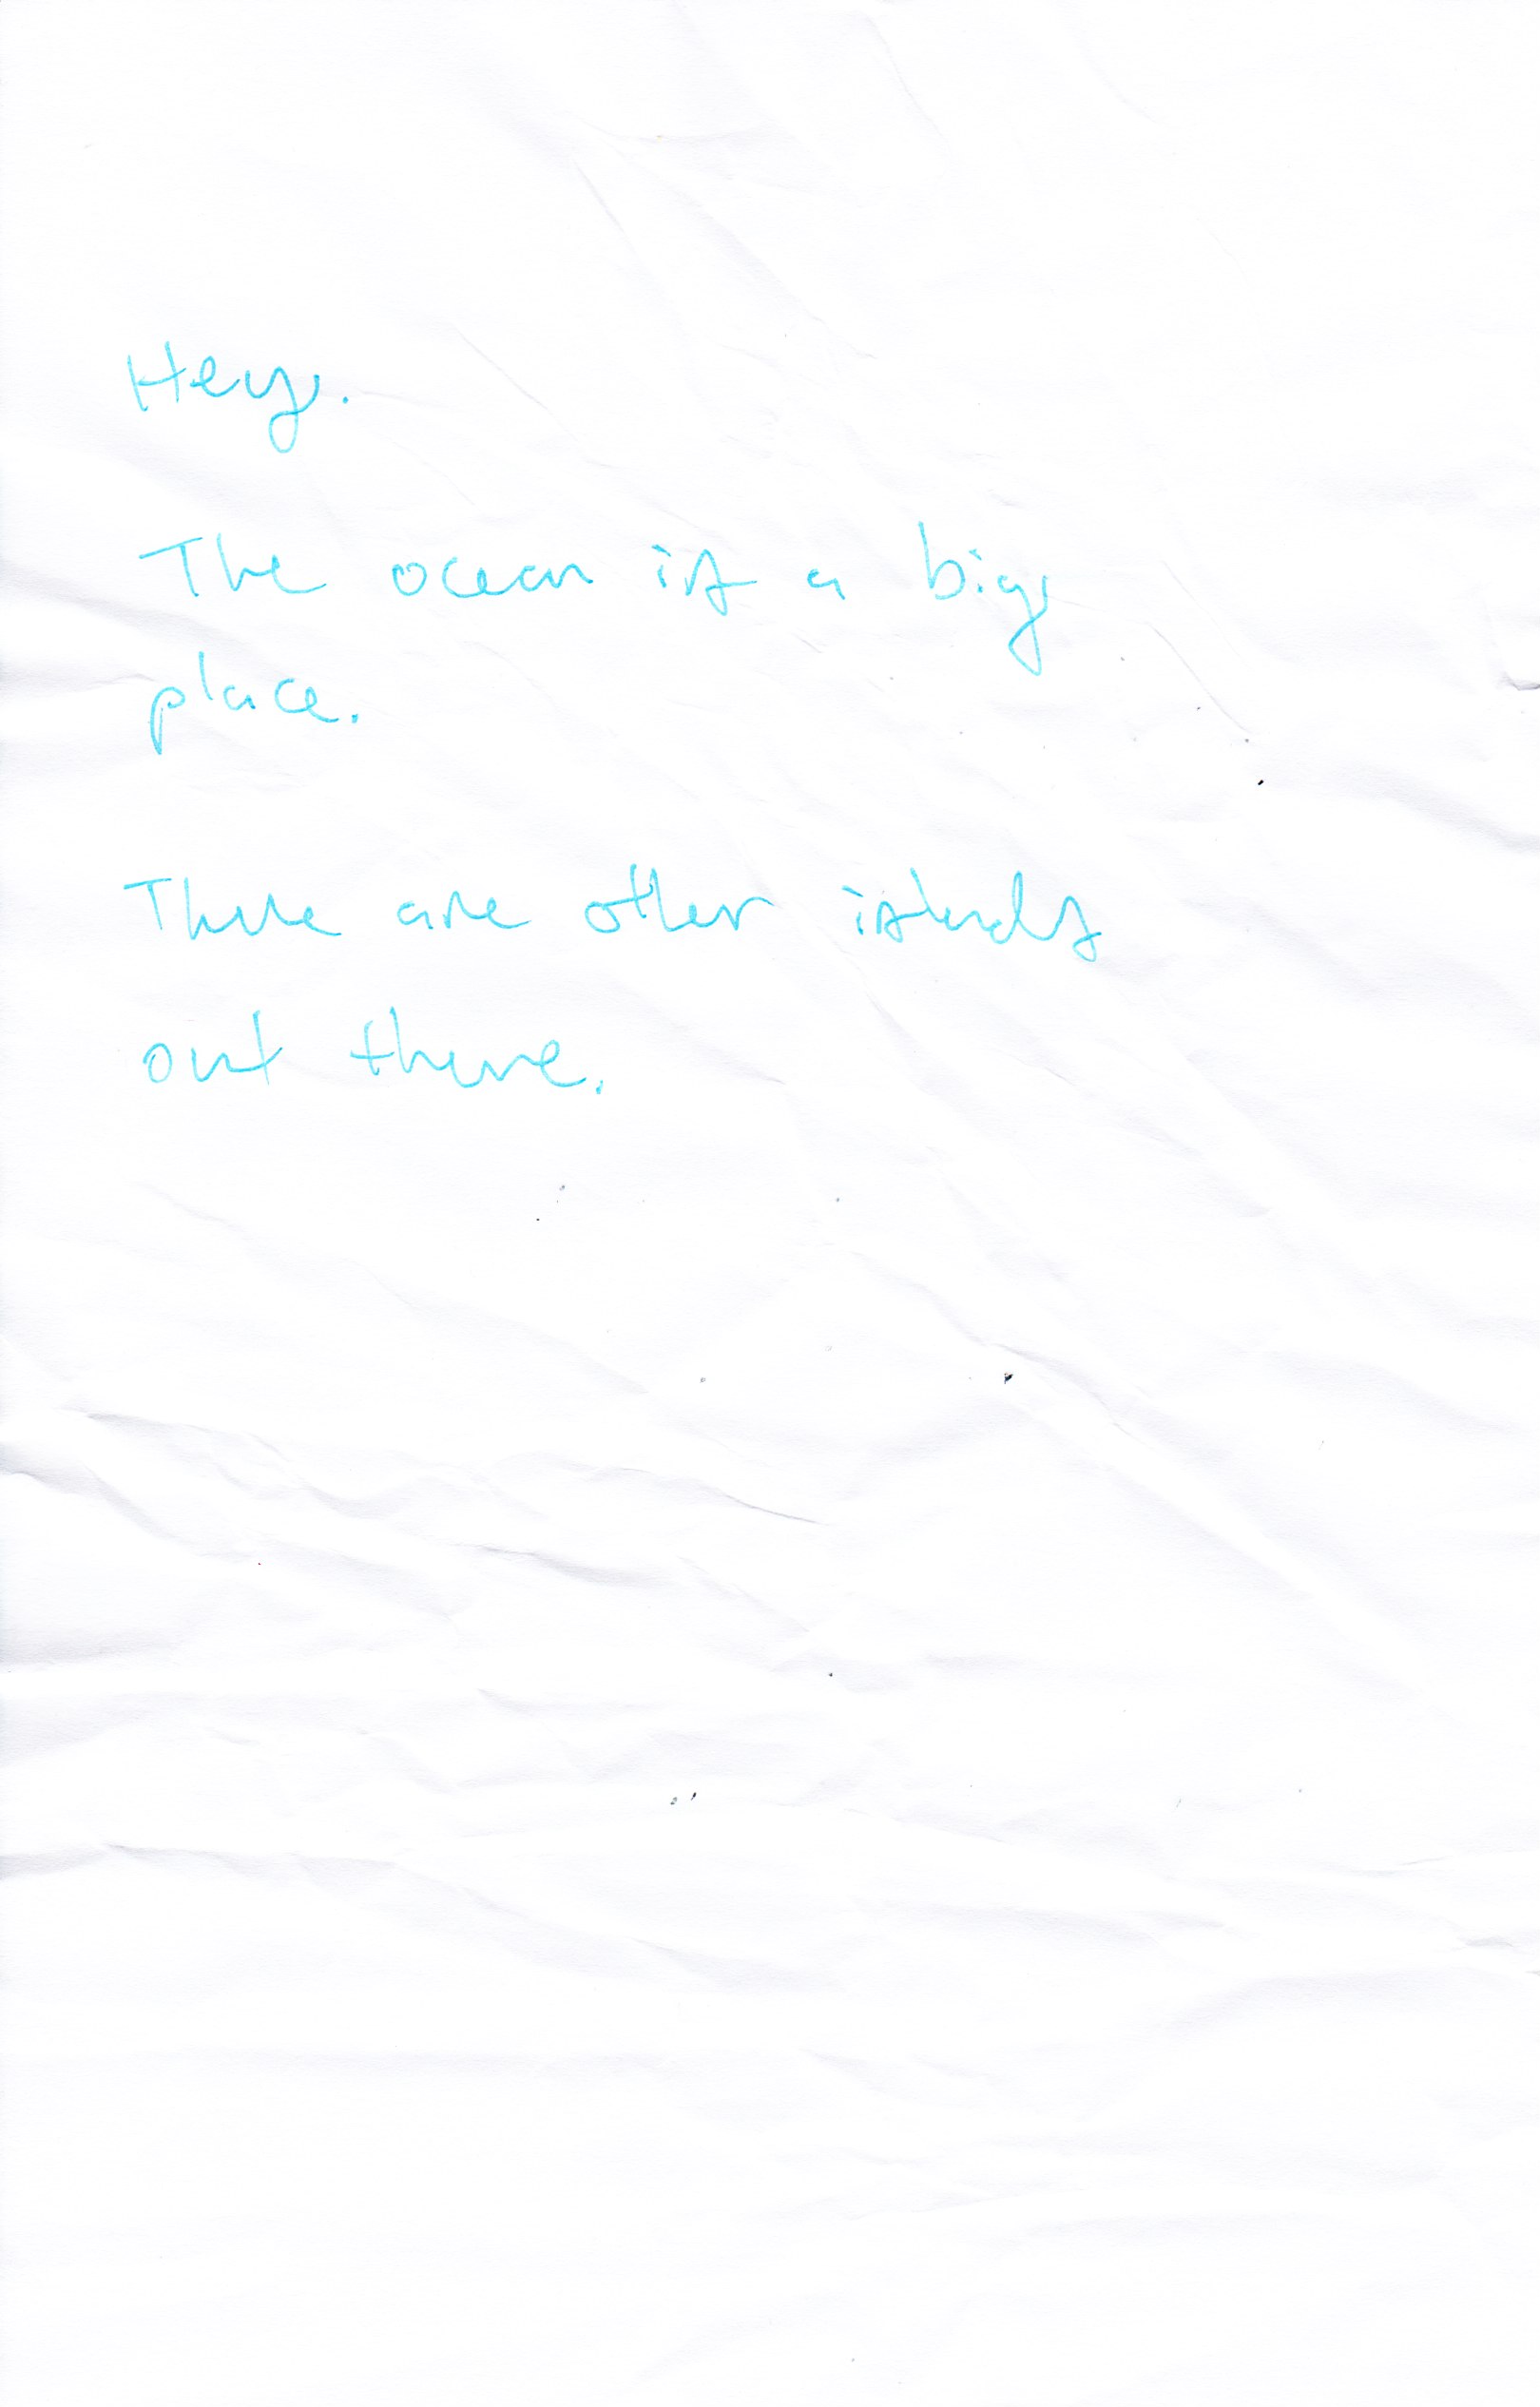 Hey.
The ocean is a big
place.
There are other islands
out there.